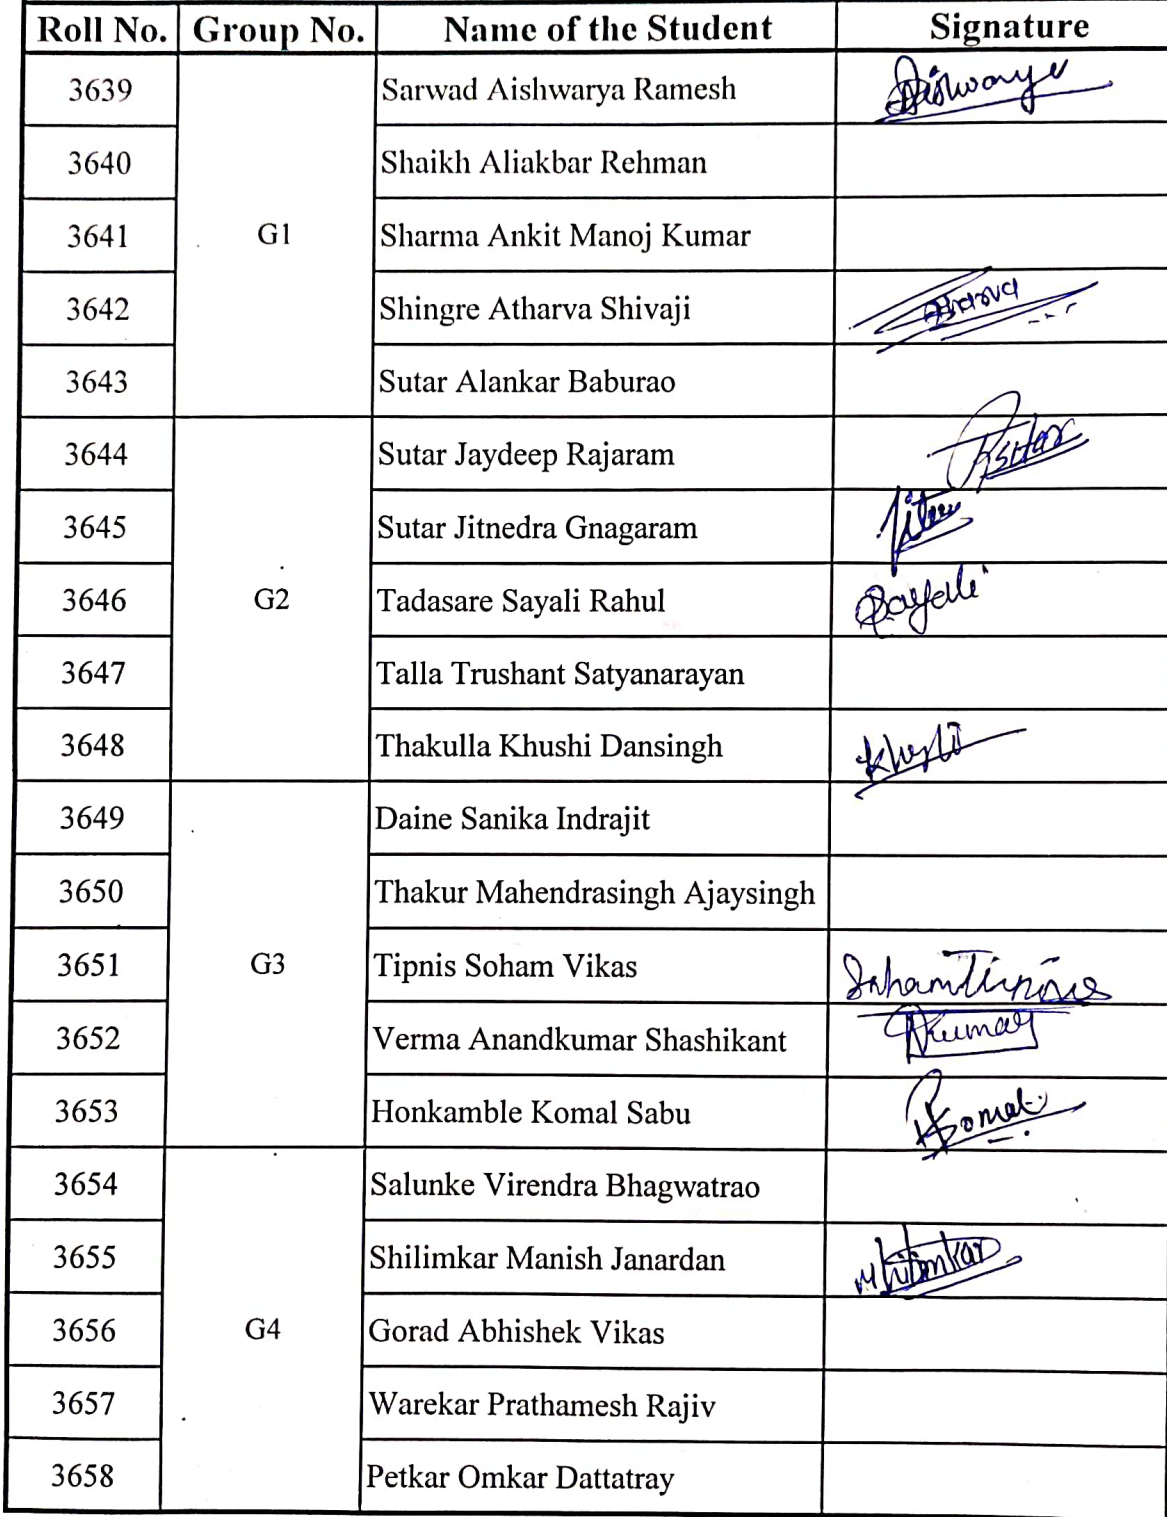 Roll No. Group No. Name of the Student Signature
3639 Sarwad Aishwarya Ramesh Aishwarya
3640 Shaikh Aliakbar Rehman
3641 G1 Sharma Ankit Manoj Kumar
3642 Shingre Atharva Shivaji
3643 Sutar Alankar Baburao
3644 Sutar Jaydeep Rajaram
3645 Sutar Jitnedra Gnagaram
3646 G2 Tadasare Sayali Rahul Sayali
3647 Talla Trushant Satyanarayan
3648 Thakulla Khushi Dansingh
3649 Daine Sanika Indrajit
3650 Thakur Mahendrasingh Ajaysingh
3651 G3 Tipnis Soham Vikas Soham Tipnis
3652 Verma Anandkumar Shashikant
3653 Honkamble Komal Sabu Komal
3654 Salunke Virendra Bhagwatrao
3655 Shilimkar Manish Janardan
3656 G4 Gorad Abhishek Vikas
3657 Warekar Prathamesh Rajiv
3658 Petkar Omkar Dattatray